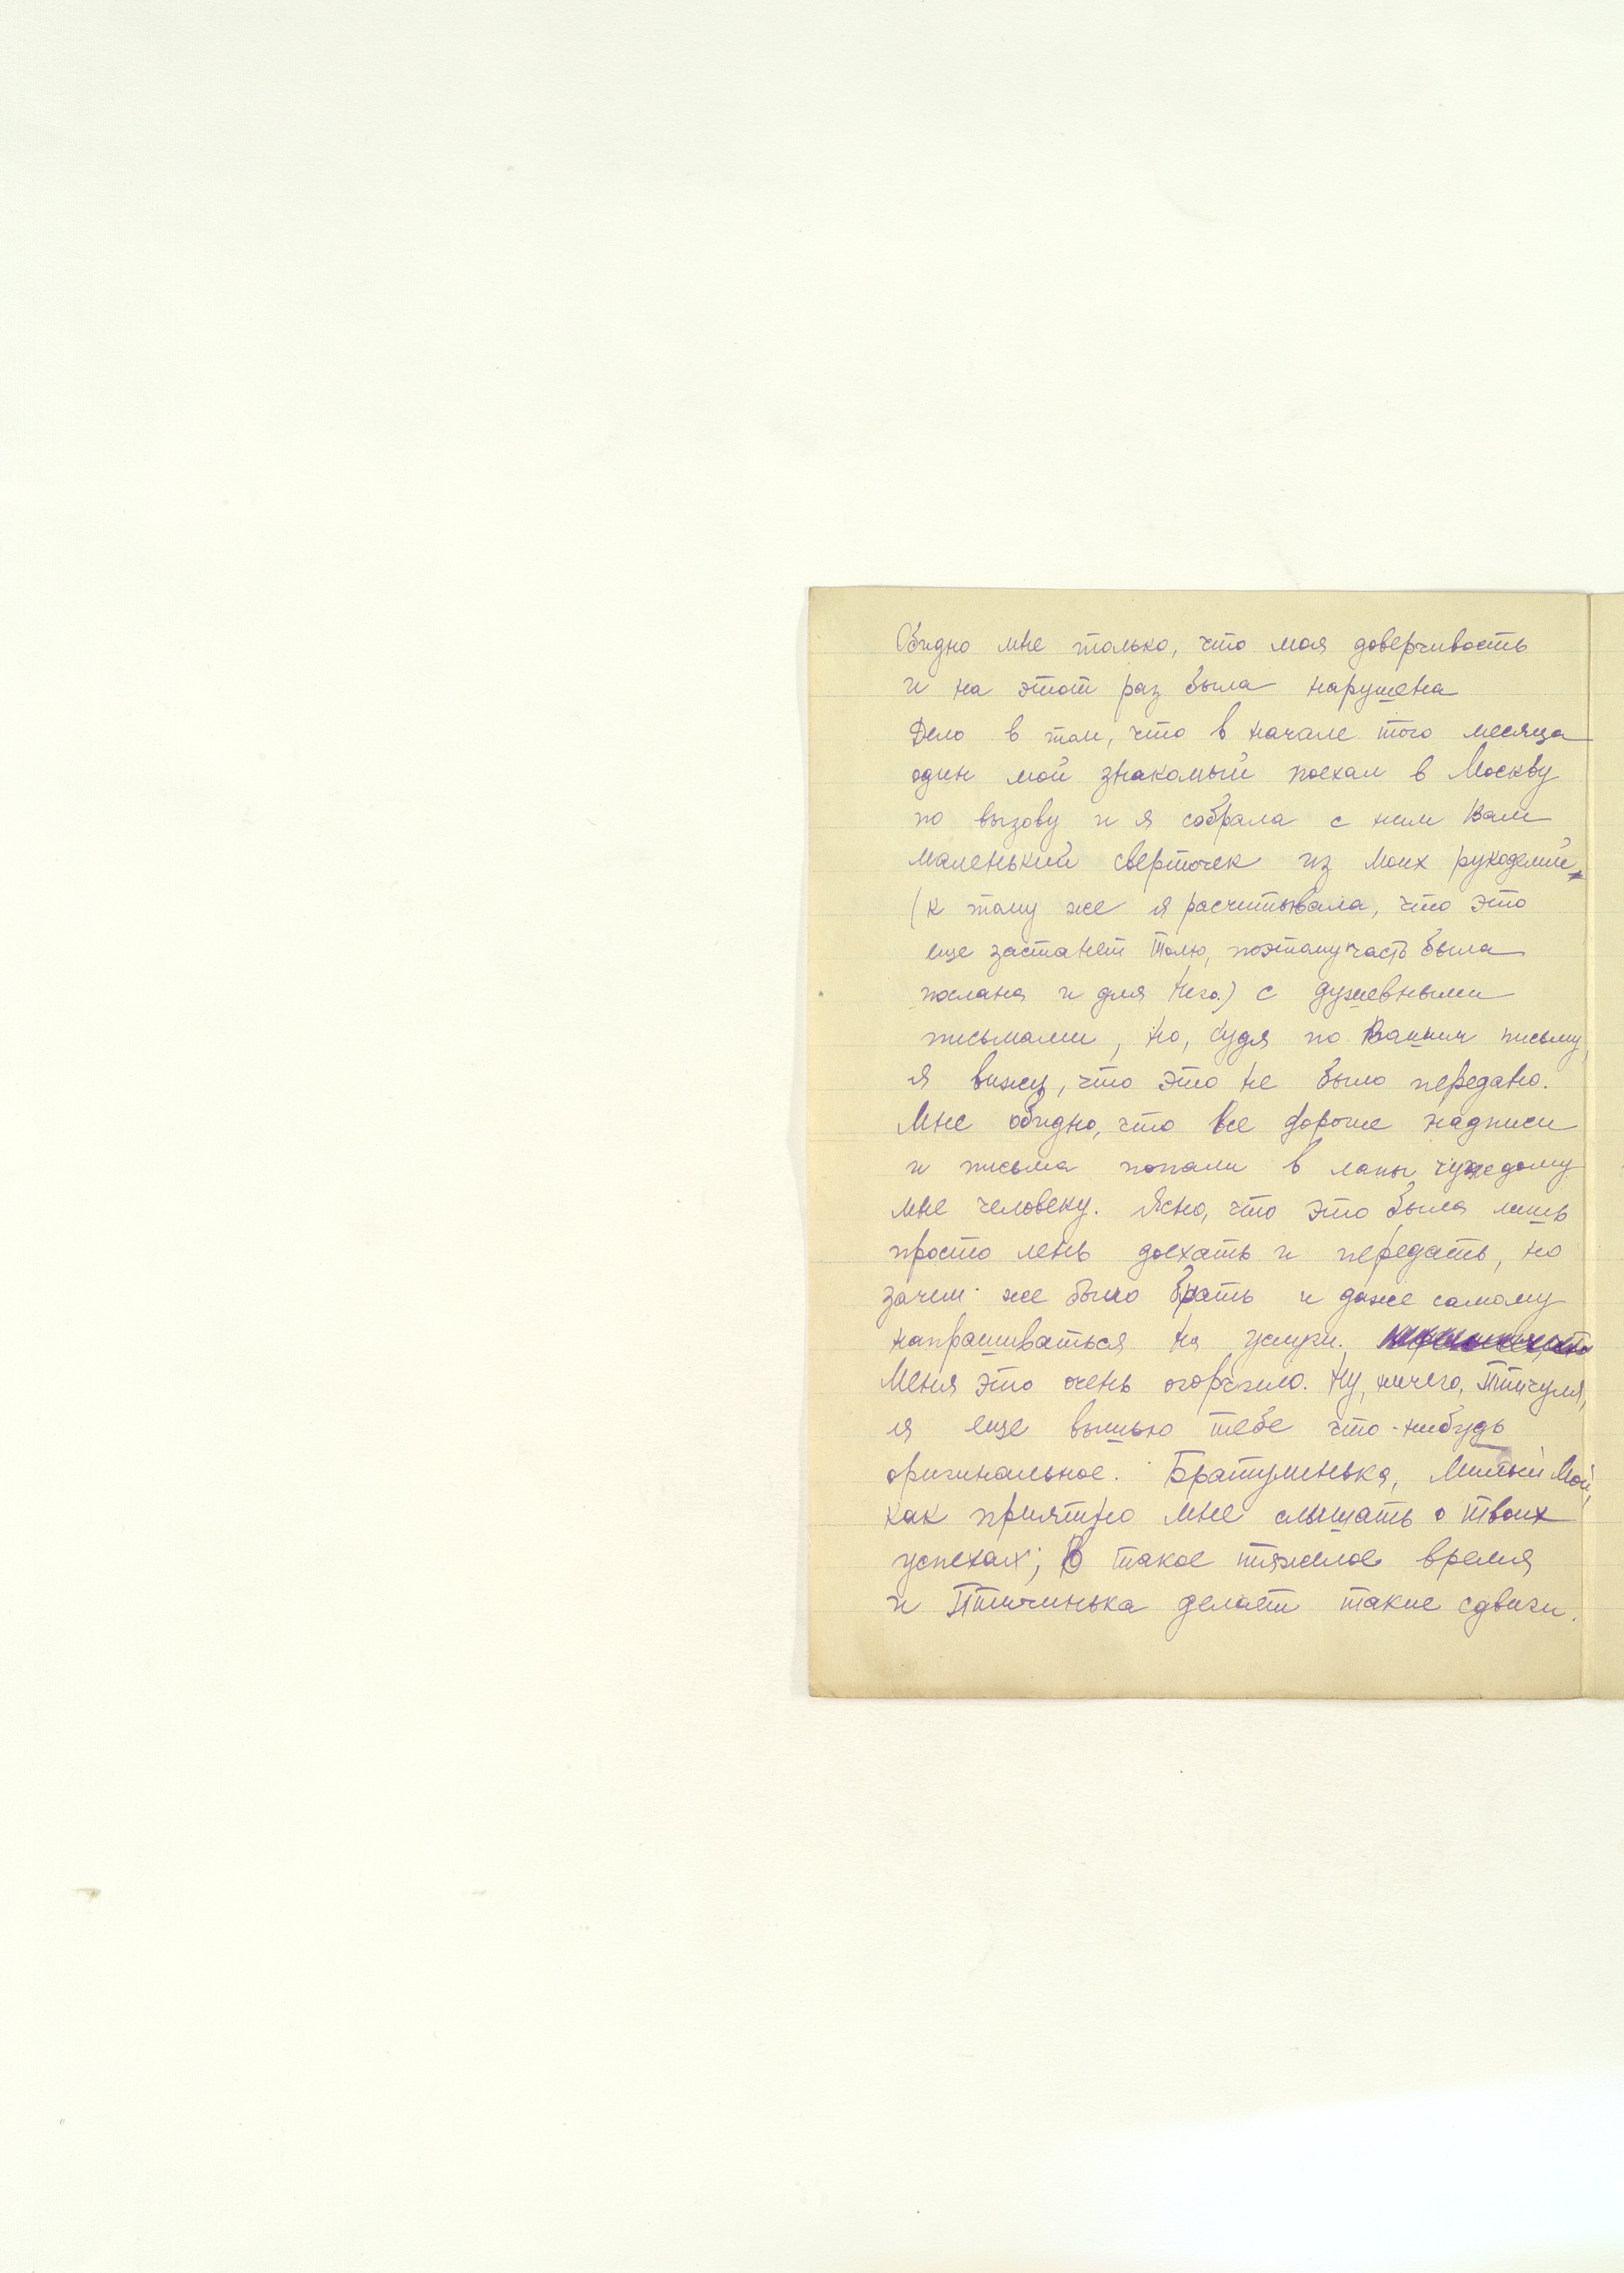 Обидно мне только, что моя доверчивость
и на этот раз была нарушена
Дело в том, что в начале того месяца
один мой знакомый поехал в Москву
по вызову и я собрала с ним Вам
маленький сверточек из моих рукоделий
(к тому же я расчитывала, что это
еще застанет Толю, поэтому часть была
послана и для него) с душевными
письмами, но, судя по Вашим письму,
я вижу, что это не было передано.
Мне обидно, что все дороже надписи
и письма попали в лапы чуждому
мне человеку. Ясно, что это была лишь
просто лень доехать и передать, но
зачем же было брать и даже самому
напрашиваться на услуги.
Меня это очень огорчило. Ну, ничего, Птичуля,
я еще вышью тебе что-нибудь
оригинальное. Братушенька, Милый Мой,
как приятно мне слышать о твоих
успехах; В такое тяжелое время
и Птичинька делает такие сдвиги.